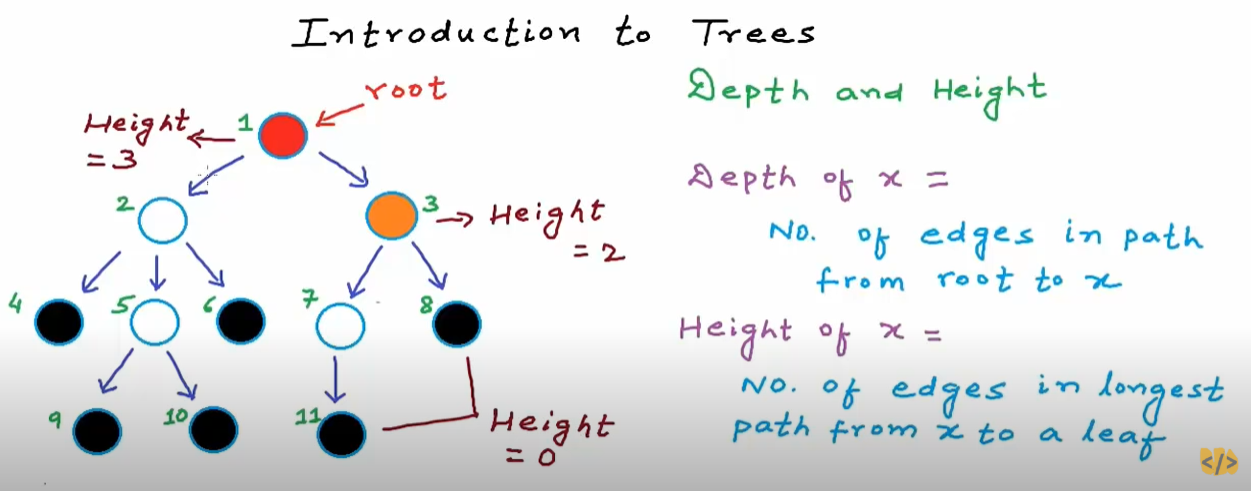 Introduction to Trees
root
Height
= 3
1
2
3
Height
= 2
4
5
6
7
8
9
10
11
Height
= 0
Depth and Height
Depth of x =
No. of edges in path
from root to x
Height of x =
No. of edges in longest
path from x to a leaf
</>